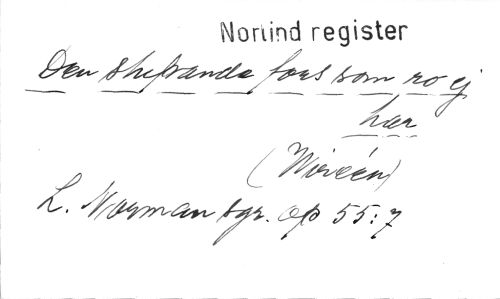 Nortind register
Den skummande fors som ro ej
har
(Wirsén)
L. Norman sgr. op 55:7